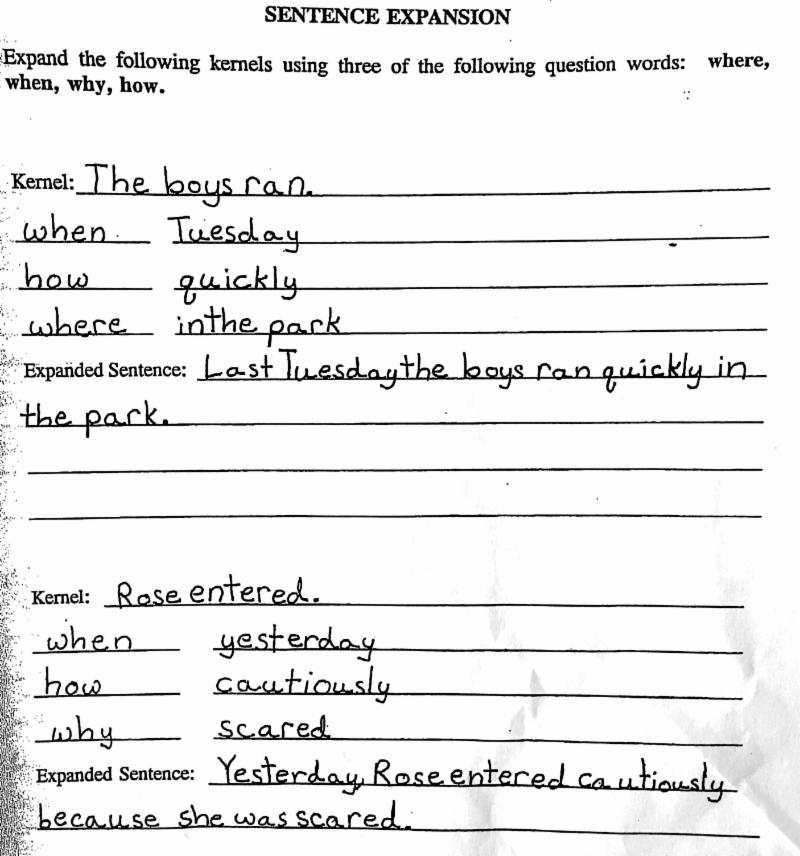 SENTENCE EXPANSION
Expand the following kernels using three of the following question words: where,
when, why, how.
Kernel: The boys ran.
when Tuesday
how quickly
where in the park
Expanded Sentence: Last Tuesday the boys ran quickly in
the park.
Kernel: Rose entered.
when yesterday
how cautiously
why scared
Expanded Sentence: Yesterday, Rose entered cautiously
because she was scared.